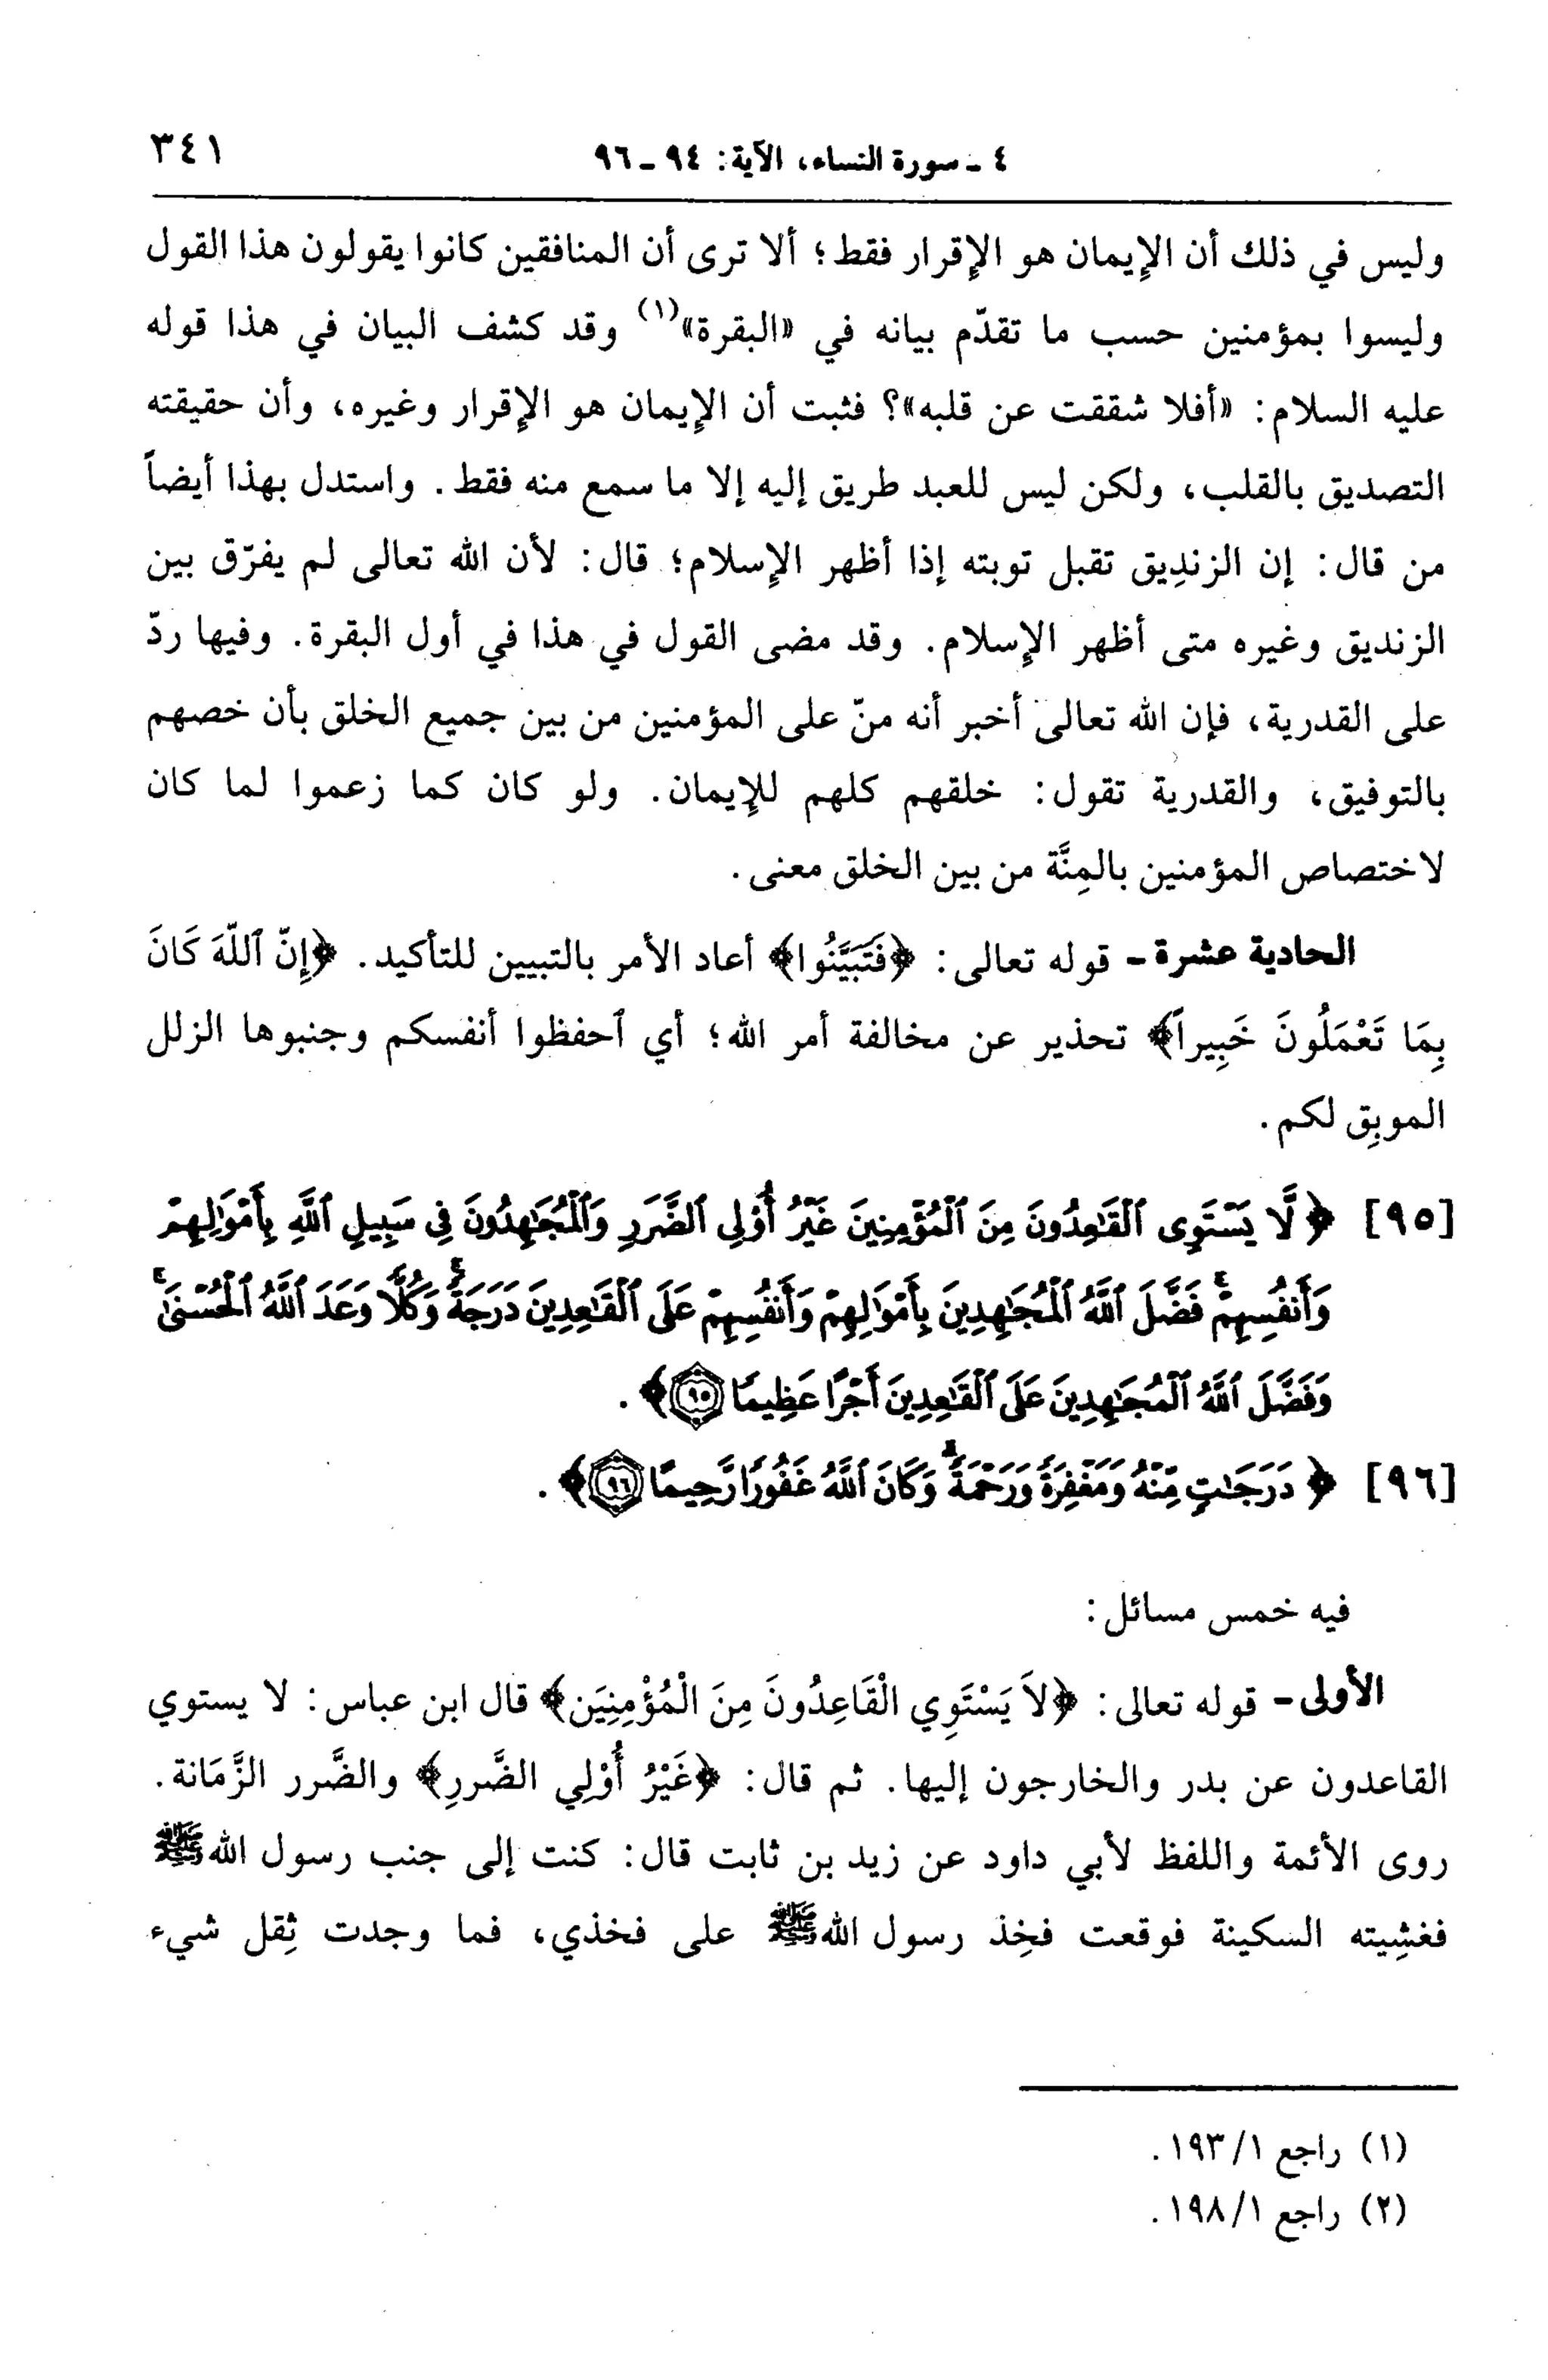 ٤ - سورة النساء، الآية: ٩٤ - ٩٦ ٣٤١
وليس في ذلك أن الإيمان هو الإقرار فقط؛ ألا ترى أن المنافقين كانوا يقولون هذا القول
وليسوا بمؤمنين حسب ما تقدّم بيانه في «البقرة»(١) وقد كشف البيان في هذا قوله
عليه السلام: «أفلا شققت عن قلبه»؟ فثبت أن الإيمان هو الإقرار وغيره، وأن حقيقته
التصديق بالقلب، ولكن ليس للعبد طريق إليه إلا ما سمع منه فقط. واستدل بهذا أيضاً
من قال: إن الزندِيق تقبل توبته إذا أظهر الإسلام؛ قال: لأن الله تعالى لم يفرّق بين
الزنديق وغيره متى أظهر الإسلام. وقد مضى القول في هذا في أول البقرة. وفيها ردّ
على القدرية، فإن الله تعالى أخبر أنه منّ على المؤمنين من بين جميع الخلق بأن خصهم
بالتوفيق، والقدرية تقول: خلقهم كلهم للإيمان. ولو كان كما زعموا لما كان
لاختصاص المؤمنين بالمِنَّة من بين الخلق معنى.
الحادية عشرة - قوله تعالى: ﴿فَتَبَيَّنُوا﴾ أعاد الأمر بالتبيين للتأكيد. ﴿إِنّ ٱللّهَ كَانَ
بِمَا تَعْمَلُونَ خَبِيراً﴾ تحذير عن مخالفة أمر الله؛ أي ٱحفظوا أنفسكم وجنبوها الزلل
الموبِق لكم.
[٩٥] ﴿لَّا يَسْتَوِى ٱلْقَٰعِدُونَ مِنَ ٱلْمُؤْمِنِينَ غَيْرُ أُو۟لِى ٱلضَّرَرِ وَٱلْمُجَٰهِدُونَ فِى سَبِيلِ ٱللَّهِ بِأَمْوَٰلِهِمْ
وَأَنفُسِهِمْ ۚ فَضَّلَ ٱللَّهُ ٱلْمُجَٰهِدِينَ بِأَمْوَٰلِهِمْ وَأَنفُسِهِمْ عَلَى ٱلْقَٰعِدِينَ دَرَجَةً ۚ وَكُلًّا وَعَدَ ٱللَّهُ ٱلْحُسْنَىٰ ۚ
وَفَضَّلَ ٱللَّهُ ٱلْمُجَٰهِدِينَ عَلَى ٱلْقَٰعِدِينَ أَجْرًا عَظِيمًا ٩٥﴾.
[٩٦] ﴿دَرَجَٰتٍ مِّنْهُ وَمَغْفِرَةً وَرَحْمَةً ۚ وَكَانَ ٱللَّهُ غَفُورًا رَّحِيمًا ٩٦﴾.
فيه خمس مسائل:
الأولى - قوله تعالى: ﴿لاَ يَسْتَوِي الْقَاعِدُونَ مِنَ الْمُؤْمِنِيَن﴾ قال ابن عباس: لا يستوي
القاعدون عن بدر والخارجون إليها. ثم قال: ﴿غَيْرُ أُوْلِي الضَّررِ﴾ والضَّرر الزَّمَانة.
روى الأئمة واللفظ لأبي داود عن زيد بن ثابت قال: كنت إلى جنب رسول الله ﷺ
فغشِيته السكينة فوقعت فخِذ رسول الله ﷺ على فخذي، فما وجدت ثِقل شيء
(١) راجع ١/١٩٣.
(٢) راجع ١/١٩٨.